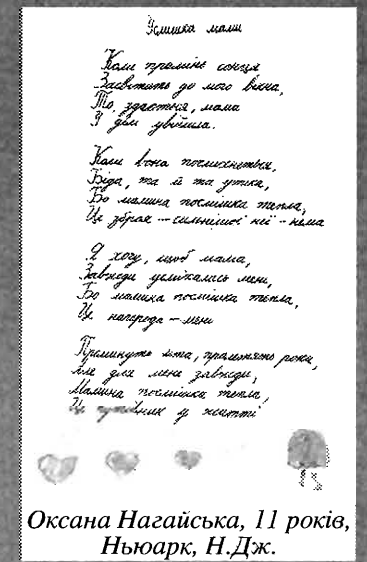 Усмішка мами
Коли промінь сонця
Засвітить до мого вікна,
То, здається, мама
У дім увійшла.
Коли вона посміхнеться,
Біда, та й та утіка,
Бо мамина посмішка тепла,
Це зброя – сильнішої неї – нема
Я хочу, щоб мама,
Завжди усміхалась мені,
Бо мамина посмішка тепла,
Це нагорода – мені
Проминуть літа, пролетять роки,
Але для мене завжди,
Мамина посмішка тепла,
Це путівник у житті
Оксана Нагайська, 11 років,
Ньюарк, Н.Дж.